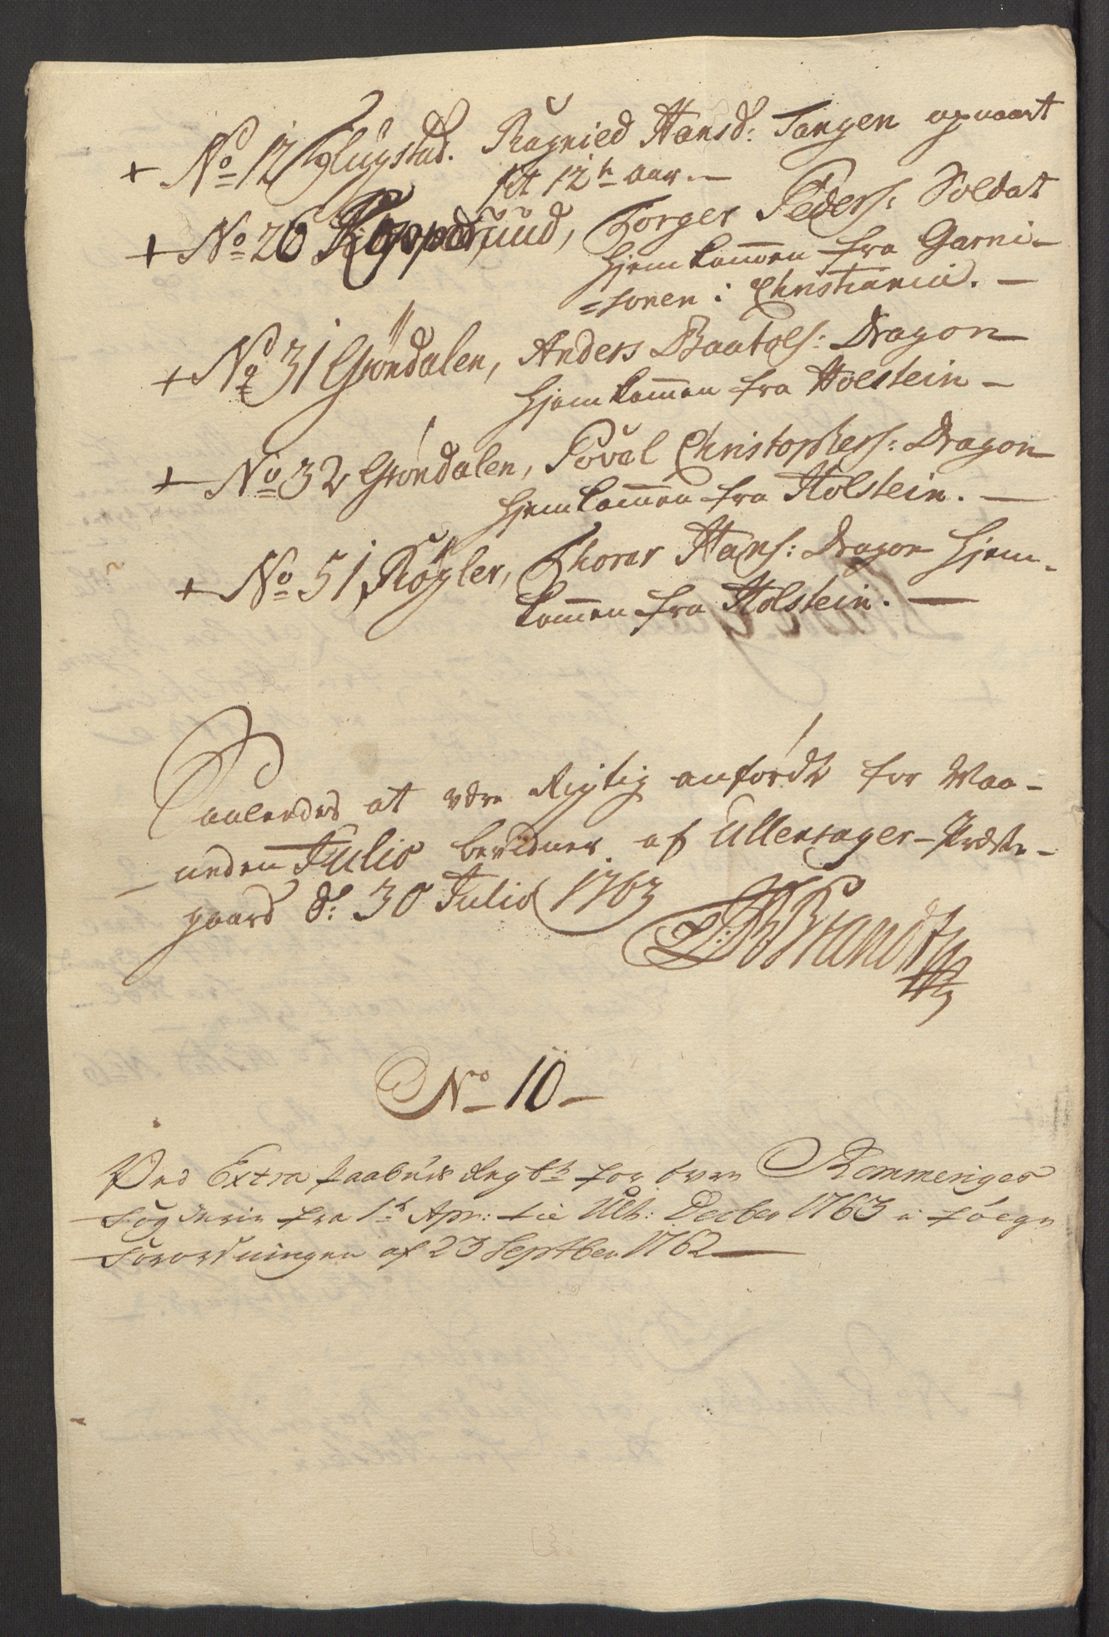 + No 12 Hugstad. Ragnied Hansd: Tangen opvaart
sit 12te aar. —
+ No 26 Kopperud, Torger Peders: Soldat
hjemkommen fra Garni-
=sonen i Christiania. —
+ No 31 Gröndalen, Anders Baatols: Dragon
hjemkommen fra Holstein —
+ No 32 Gröndalen, Povel Christophers: Dragon
hjemkommen fra Holstein. —
+ No 51 Kögler, Thorer Hans: Dragon hjem-
kommen fra Holstein. —
Saaledes at være Rigtig anfördt for Maa-
neden Julio bevidner af Ullensager-Præste-
gaard d: 30 Julio 1763
Brandt
No 10 —
Ved Extra Skattens Regsk for övre Rommeriges
Fogderie fra 1te Apr: til Ult: Decber 1763 i fölge
Forordningen af 23 Septber 1762 —